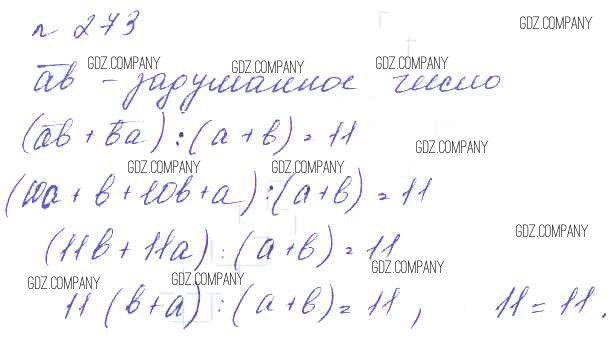 n 273 GDZ.COMPANY
GDZ.COMPANY GDZ.COMPANY GDZ.COMPANY
ab - задуманное число
(ab + ba) : (a + b) = 11
GDZ.COMPANY
GDZ.COMPANY GDZ.COMPANY
(10a + b + 10b + a) : (a + b) = 11
GDZ.COMPANY
(11b + 11a) : (a + b) = 11
GDZ.COMPANY GDZ.COMPANY GDZ.COMPANY
11 (b + a) : (a + b) = 11, 11 = 11.